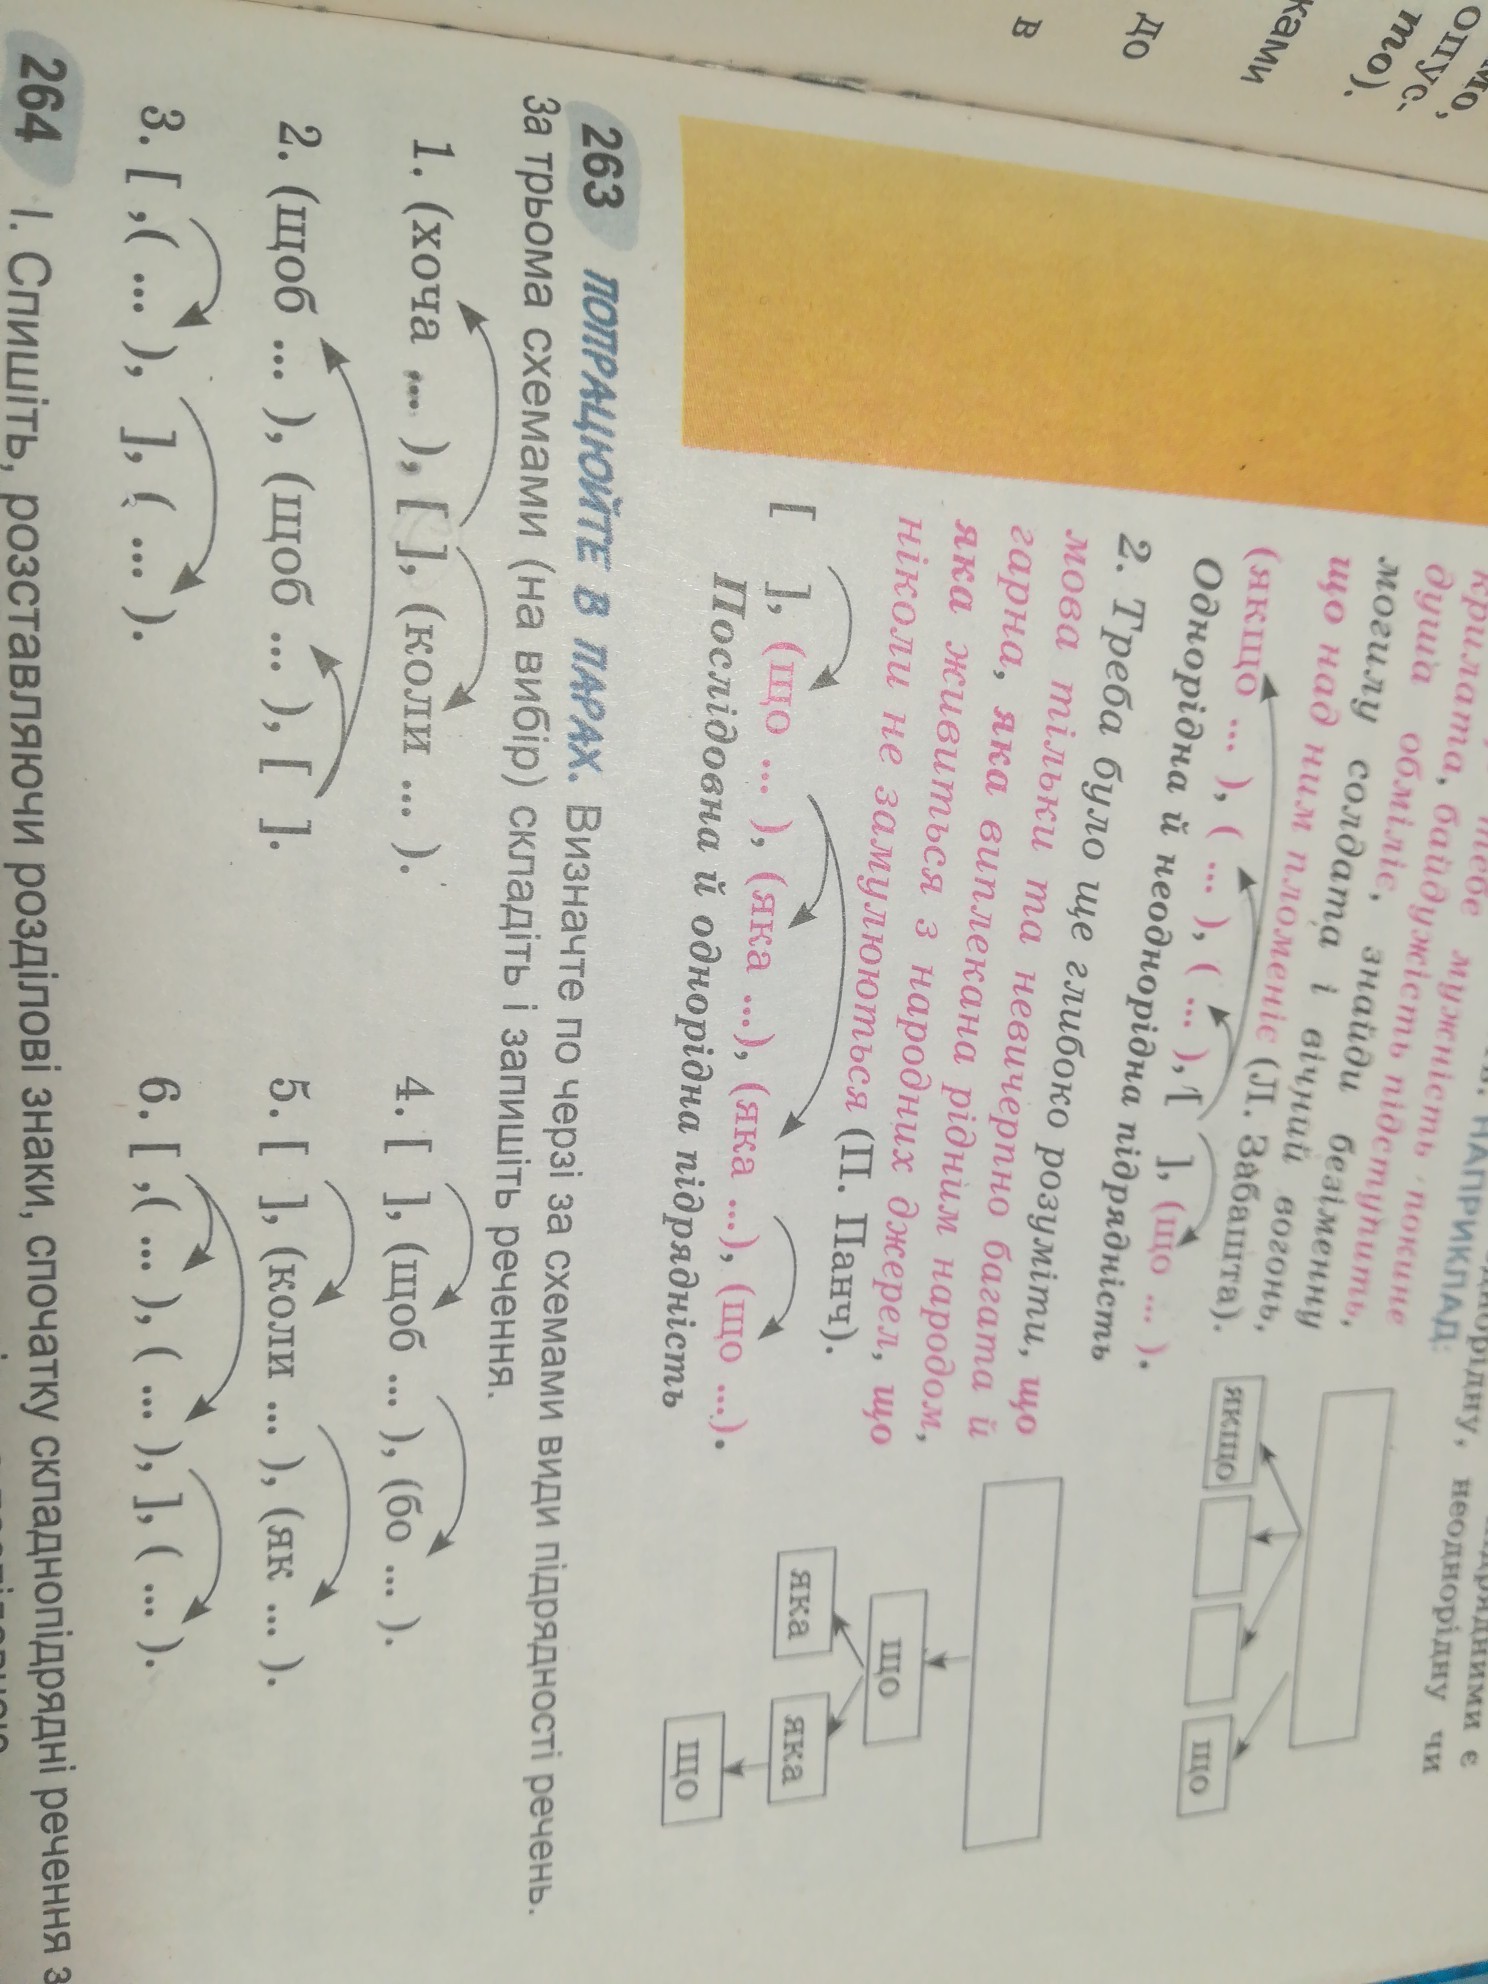 мо,
опус-
то).
ками
до
в
крилата, байдужість підступить,
душа обміліє, знайди безіменну
могилу солдата і вічний вогонь,
що над ним пломеніє (Л. Забашта).
(якщо ... ), ( ... ), ( ... ), [ ], (що ... ).
Однорідна й неоднорідна підрядність
якщо
що
2. Треба було ще глибоко розуміти, що
мова тільки та невичерпно багата й
гарна, яка виплекана рідним народом,
яка живиться з народних джерел, що
ніколи не замулюються (П. Панч).
[ ], (що ... ), (яка ...), (яка ...), (що ...).
Послідовна й однорідна підрядність
що
яка
яка
що
263 ПОПРАЦЮЙТЕ В ПАРАХ. Визначте по черзі за схемами види підрядності речень.
За трьома схемами (на вибір) складіть і запишіть речення.
1. (хоча ... ), [ ], (коли ... ).
4. [ ], (щоб ... ), (бо ... ).
2. (щоб ... ), (щоб ... ), [ ].
5. [ ], (коли ... ), (як ... ).
3. [ ,( ... ), ], ( ... ).
6. [ ,( ... ), ( ... ), ], ( ... ).
264 І. Спишіть, розставляючи розділові знаки, спочатку складнопідрядні речення з